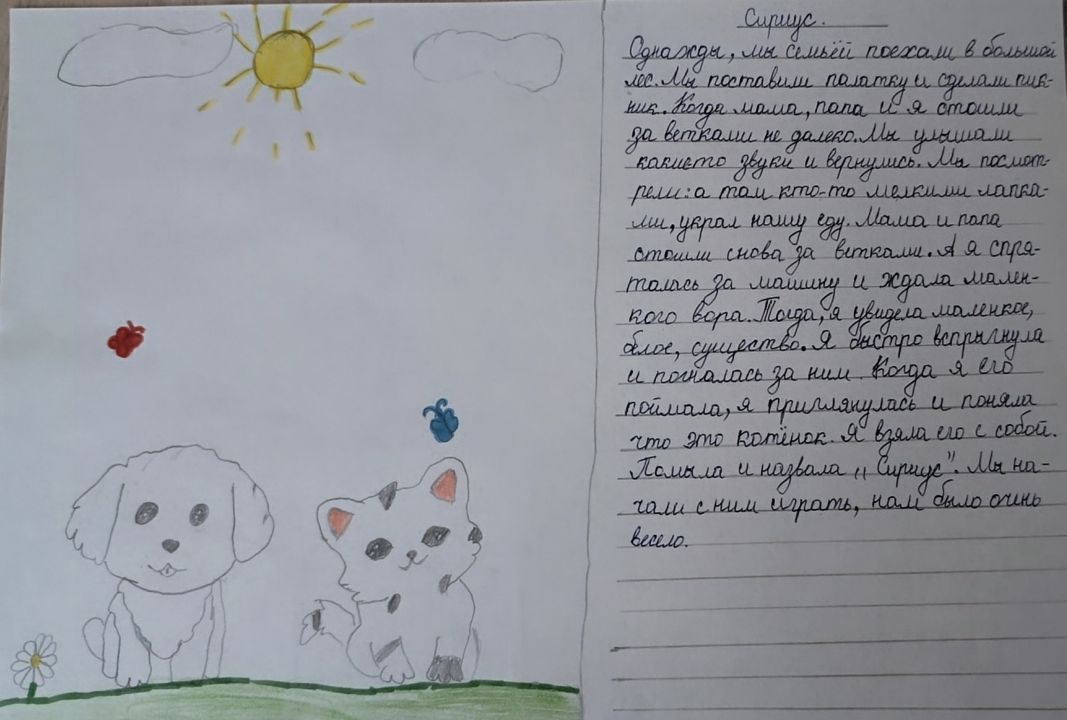 Сириус.
Однажды, мы семьёй поехали в большой
лес. Мы поставили палатку и сделали пик-
ник. Когда мама, папа и я отошли
за ветками не далеко. Мы улышали
какието звуки и вернулись. Мы посмот-
рели: а там кто-то мелкими лапка-
ми, украл нашу еду. Мама и папа
отошли снова за ветками. А я спря-
талась за машину и ждала мален-
кого вора. Тогда, я увидела маленкое,
белое, существо. Я быстро вспрыгнула
и погналась за ним. Когда я его
поймала, я пригля­нулась и поняла
что это котёнок. Я взяла его с собой.
Помыла и назвала „Сириус". Мы на-
чали с ним играть, нам было очинь
весело.